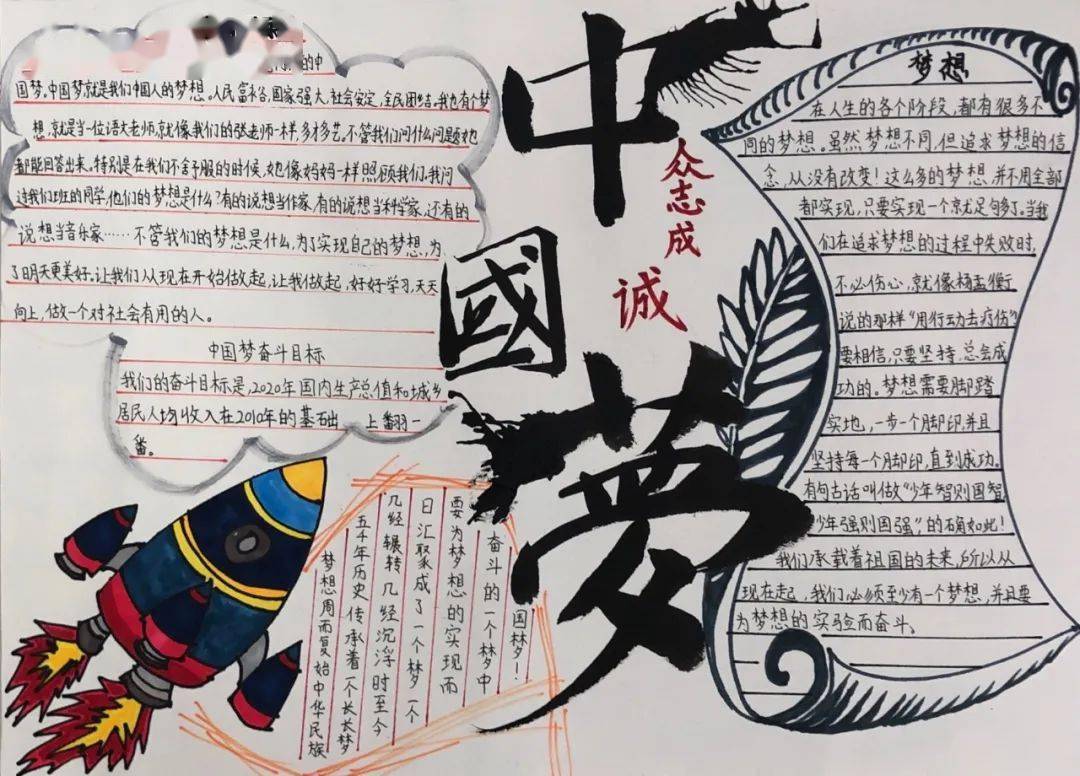 的中
国梦,中国梦就是我们中国人的梦想。人民富裕,国家强大,社会安定,全民团结。我也有个梦
想,就是当一位语文老师,就像我们的张老师一样,多才多艺。不管我们问什么问题她
都能回答出来。特别是在我们不舒服的时候,她像妈妈一样照顾我们。我问
过我们班的同学,他们的梦想是什么?有的说想当作家,有的说想当科学家,还有的
说想当音乐家……不管我们的梦想是什么,为了实现自己的梦想,为
了明天更美好。让我们从现在开始做起,让我做起,好好学习,天天
向上,做一个对社会有用的人。
中国梦奋斗目标
我们的奋斗目标是,2020年国内生产总值和城乡
居民人均收入在2010年的基础 上翻一
番。
梦想周而复始中华民族
五千年历史传承着一个长长梦
几经辗转几经沉浮时至今
日汇聚成了一个梦一个
要为梦想的实现而
奋斗的一个梦中
国梦!
中
國
夢
众志成
诚
梦想
在人生的各个阶段,都有很多不
同的梦想。虽然梦想不同,但追求梦想的信
念,从没有改变!这么多的梦想,并不用全部
都实现,只要实现一个就足句多了。当我
们在追求梦想的过程中失败时,
不必伤心,就像杨孟衡
说的那样“用行动去疗伤”
要相信,只要坚持,总会成
功的。梦想需要脚踏
实地,一步一个脚印,并且
坚持每一个脚印,直到成功。
有句古话叫做“少年智则国智
少年强则国强”,的确如此!
我们承载着祖国的未来,所以从
现在起,我们必须至少有一个梦想,并且要
为梦想的实验而奋斗。